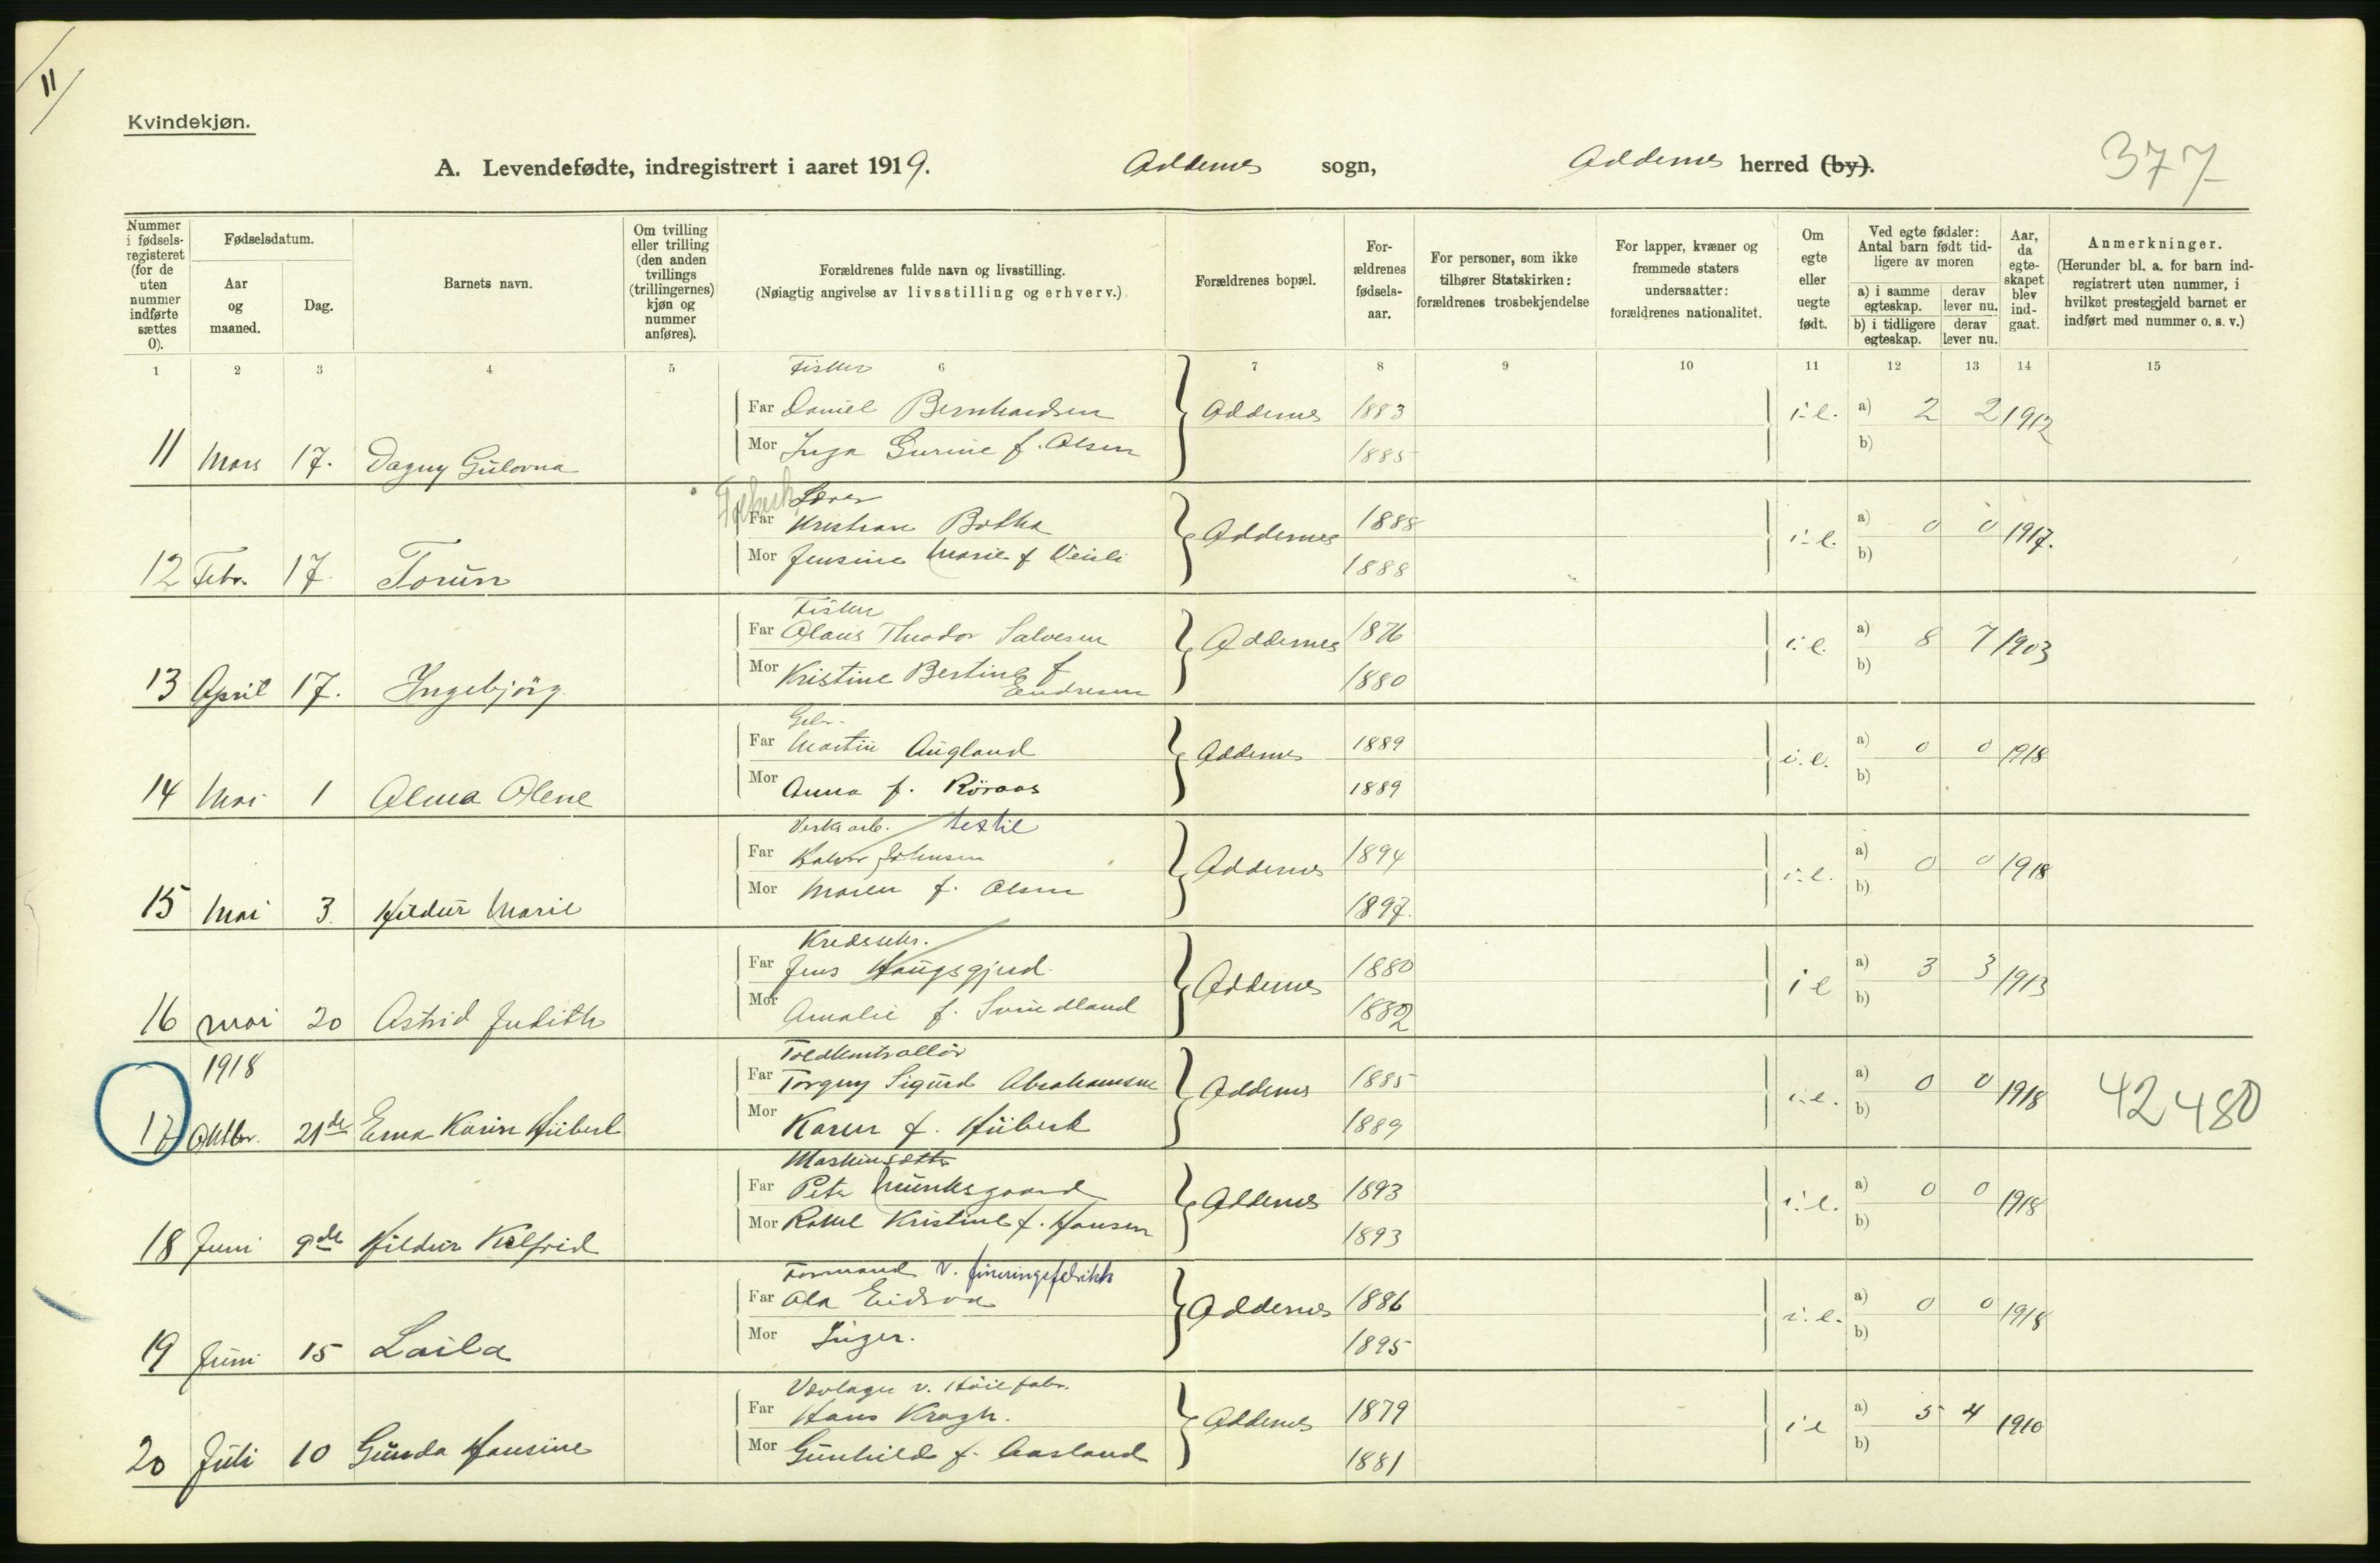 11
Kvindekjøn.
A. Levendefødte, indregistrert i aaret 1919. Oddernes sogn, Oddernes herred (by). 377
Nummer i fødsels-registeret (for de uten nummer indførte sættes 0).
Fødselsdatum.
Aar og maaned.
Dag.
Barnets navn.
Om tvilling eller trilling (den anden tvillings (trillingernes) kjøn og nummer anføres).
Forældrenes fulde navn og livsstilling.
(Nøiagtig angivelse av livsstilling og erhverv.)
Forældrenes bopæl.
For-ældrenes fødsels-aar.
For personer, som ikke tilhører Statskirken: forældrenes trosbekjendelse
For lapper, kvæner og fremmede staters undersaatter: forældrenes nationalitet.
Om egte eller uegte født.
Ved egte fødsler: Antal barn født tid-ligere av moren
a) i samme egteskap. derav lever nu.
b) i tidligere egteskap. derav lever nu.
Aar, da egte-skapet blev ind-gaat.
Anmerkninger.
(Herunder bl. a. for barn ind-registrert uten nummer, i hvilket prestegjeld barnet er indført med nummer o. s. v.)
1 2 3 4 5 6 7 8 9 10 11 12 13 14 15
Fisker
Far Daniel Bernhardsen Oddernes 1883 i.e. a) 2 2 1912
Mor Inga Gurine f. Olsen 1885 b)
11 Mars 17. Dagny Gulovna
Lærer
Far Kristian Botha Oddernes 1888 i.e. a) 0 0 1917.
Mor Jensine Marie f Veisli 1888 b)
12 Febr. 17. Torun
Fisker
Far Olaus Theodor Salvesen Oddernes 1876 i.e. a) 8 7 1903
Mor Kristine Bertine f Endresen 1880 b)
13 April 17. Ingebjörg
Gbr.
Far Martin Augland Oddernes 1889 i.e. a) 0 0 1918
Mor Anna f. Röraas 1889 b)
14 Mai 1 Alma Olene
Verksarb. textil
Far Halvor Johnsen Oddernes 1894 i.e. a) 0 0 1918
Mor Maren f. Olsen 1897. b)
15 Mai 3. Hildur Marie
Kredssekr.
Far Jens Haugsgjerd. Oddernes 1880 i e a) 3 3 1913
Mor Amalie f. Svindland 1882 b)
16 Mai 20 Astrid Judith
1918
Toldkontrollör
Far Torguy Sigurd Abrahamsen Oddernes 1885 i.e. a) 0 0 1918 42480
Mor Karen f. Hübert 1889 b)
17 Oktbr. 21de Erna Karin Hübert
Maskinsætter
Far Peter Munksgaard Oddernes 1893 i.e. a) 0 0 1918
Mor Rakel Kristine f. Hansen 1893 b)
18 Juni 9de Hildur Kelfrid
Formand v. fineringsfabrikk
Far Ola Eidsvik Oddernes 1886 i.e. a) 0 0 1918
Mor Inger. 1895 b)
19 Juni 15 Laila
v. Höie fabr.
Far Hans Kragh. Oddernes 1879 i e a) 5 4 1910
Mor Gunhild f. Aasland 1881 b)
20 Juli 10 Gunda Hansine